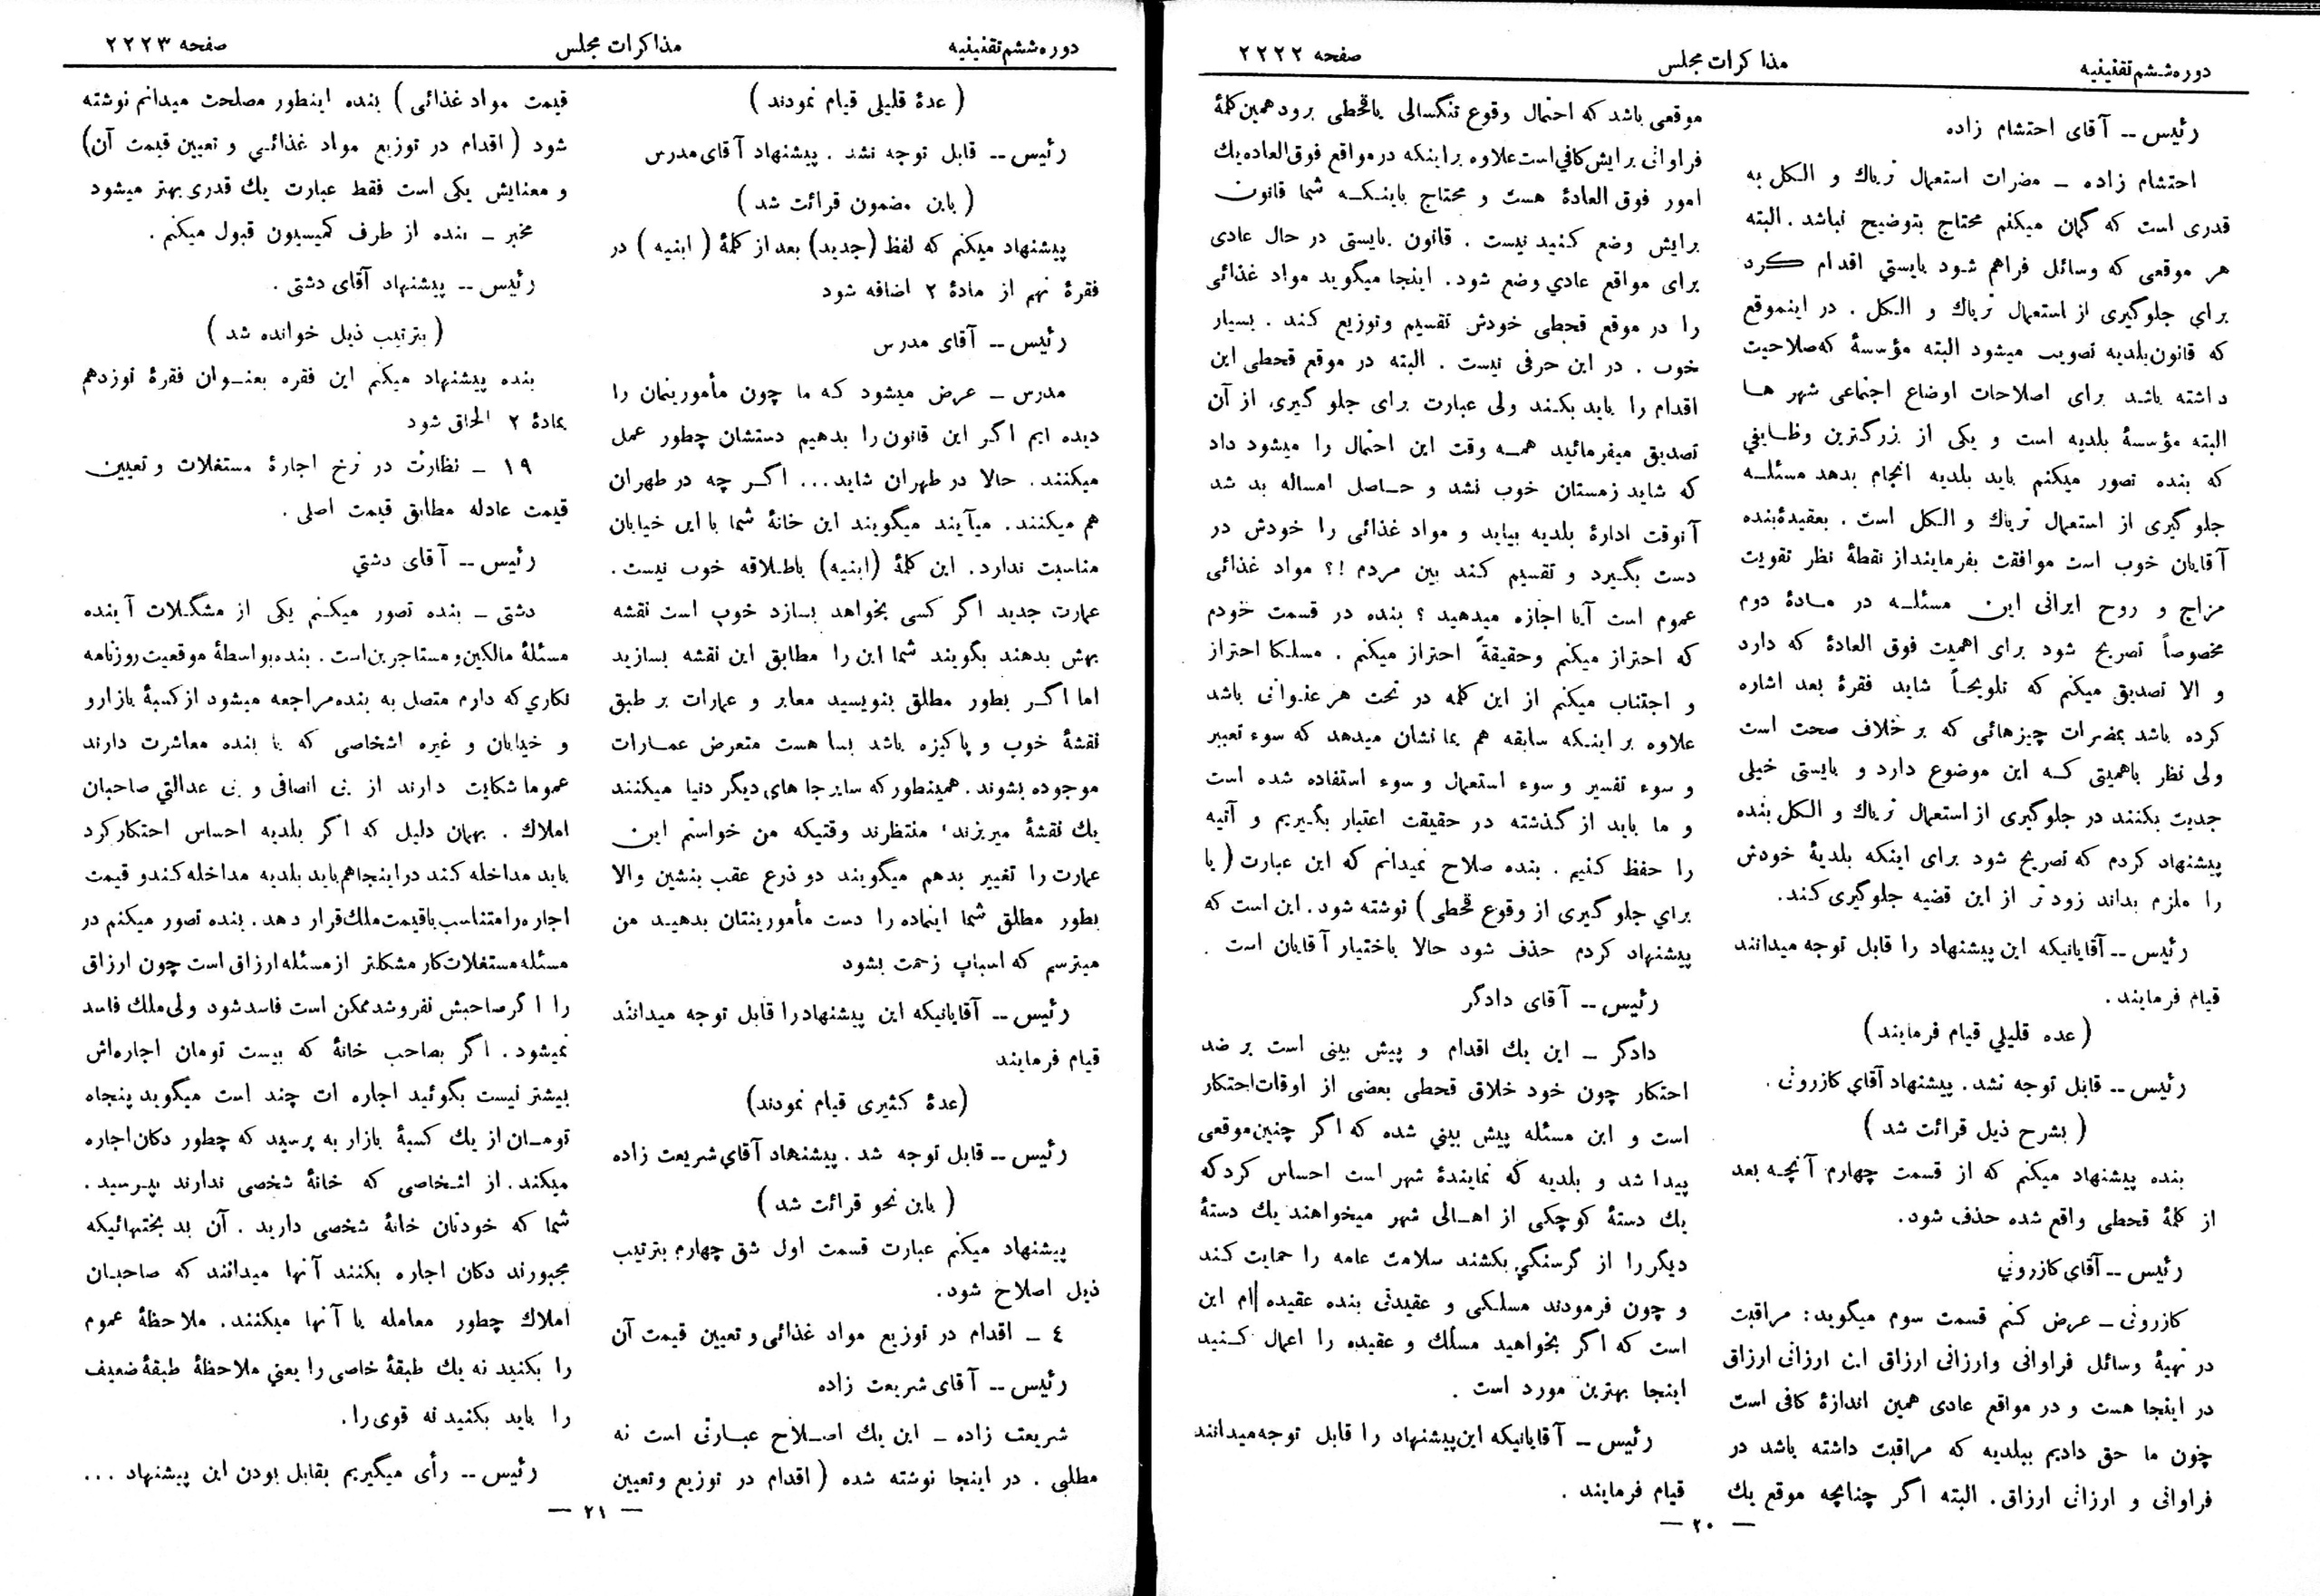 دوره ششم تقنینیه
مذاکرات مجلس
صفحه ۲۲۲۲
رئیس -- آقای احتشام زاده
احتشام زاده - مضرات استعمال تریاك و الکل به
قدری است که گمان میکنم محتاج بتوضیح نباشد . البته
هر موقعی که وسائل فراهم شود بایستي اقدام کرد
براي جلوگیری از استعمال تریاك و الکل . در اینموقع
که قانون بلدیه تصویب میشود البته مؤسسهٔ که صلاحیت
داشته باشد برای اصلاحات اوضاع اجتماعی شهر ها
البته مؤسسهٔ بلدیه است و یکی از بزرگترین وظایفي
که بنده تصور میکنم باید بلدیه انجام بدهد مسئله
جلوگیری از استعمال تریاك و الکل است . بعقیدهٔ بنده
آقایان خوب است موافقت بفرمایند از نقطهٔ نظر تقویت
مزاج و روح ایرانی این مسئله در مادهٔ دوم
مخصوصاً تصریح شود برای اهمیت فوق العادهٔ که دارد
و الا تصدیق میکنم که تلویحاً شاید فقرهٔ بعد اشاره
کرده باشد بمضرات چیزهائی که بر خلاف صحت است
ولی نظر باهمیتی که این موضوع دارد و بایستی خیلی
جدیت بکنند در جلوگیری از استعمال تریاك و الکل بنده
پیشنهاد کردم که تصریح شود برای اینکه بلدیهٔ خودش
را ملزم بداند زود تر از این قضیه جلوگیری کند.
رئیس -- آقایانیکه این پیشنهاد را قابل توجه میدانند
قیام فرمایند .
(عده قلیلي قیام فرمایند)
رئیس -- قابل توجه نشد . پیشنهاد آقاي کازرونی .
( بشرح ذیل قرائت شد )
بنده پیشنهاد میکنم که از قسمت چهارم آنچه بعد
از کلمهٔ قحطی واقع شده حذف شود.
رئیس -- آقاي کازروني
کازرونی - عرض کنم قسمت سوم میگوید : مراقبت
در تهیهٔ وسائل فراوانی وارزانی ارزاق این ارزانی ارزاق
در اینجا هست و در مواقع عادی همین اندازهٔ کافی است
چون ما حق دادیم ببلدیه که مراقبت داشته باشد در
فراوانی و ارزانی ارزاق. البته اگر چنانچه موقع یك
موقعی باشد که احتمال وقوع تنگسالی یا قحطی برود همین کلمهٔ
فراوانی برایش کافی است علاوه بر اینکه در مواقع فوق العاده یك
امور فوق العادهٔ هست و محتاج باینکه شما قانون
برایش وضع کنید نیست . قانون بایستی در حال عادی
برای مواقع عادي وضع شود. اینجا میگوید مواد غذائی
را در موقع قحطی خودش تقسیم وتوزیع کند . بسیار
خوب . در این حرفی نیست . البته در موقع قحطی این
اقدام را باید بکند ولی عبارت برای جلو گیری از آن
تصدیق میفرمائید همه وقت این احتمال را میشود داد
که شاید زمستان خوب نشد و حاصل امساله بد شد
آنوقت ادارهٔ بلدیه بیاید و مواد غذائی را خودش در
دست بگیرد و تقسیم کند بین مردم !؟ مواد غذائی
عموم است آیا اجازه میدهید ؟ بنده در قسمت خودم
که احتراز میکنم وحقیقةً احتراز میکنم . مسلکا احتراز
و اجتناب میکنم از این کلمه در تحت هر عنوانی باشد
علاوه بر اینکه سابقه هم بما نشان میدهد که سوء تعبیر
و سوء تفسیر و سوء استعمال و سوء استفاده شده است
و ما باید از گذشته در حقیقت اعتبار بگیریم و آتیه
را حفظ کنیم . بنده صلاح نمیدانم که این عبارت ( یا
براي جلوگیری از وقوع قحطی ) نوشته شود. این است که
پیشنهاد کردم حذف شود حالا باختیار آقایان است .
رئیس -- آقای دادگر
دادگر - این یك اقدام و پیش بینی است بر ضد
احتکار چون خود خلاق قحطی بعضی از اوقات احتکار
است و این مسئله پیش بیني شده که اگر چنین موقعی
پیدا شد و بلدیه که نمایندهٔ شهر است احساس کرد که
یك دستهٔ کوچکی از اهالی شهر میخواهند یك دستهٔ
دیگر را از گرسنگي بکشند سلامت عامه را حمایت کند
و چون فرمودند مسلکی و عقیدتی بنده عقیده ام این
است که اگر بخواهید مسلك و عقیده را اعمال کنید
اینجا بهترین مورد است .
رئیس - آقایانیکه این پیشنهاد را قابل توجه میدانند
قیام فرمایند .
— ۲۰ —
دوره ششم تقنینیه
مذاکرات مجلس
صفحه ۲۲۲۳
( عدهٔ قلیلی قیام نمودند )
رئیس -- قابل توجه نشد . پیشنهاد آقای مدرس
( باین مضمون قرائت شد )
پیشنهاد میکنم که لفظ (جدید) بعد از کلمهٔ ( ابنیه ) در
فقرهٔ نهم از مادهٔ ۲ اضافه شود
رئیس -- آقای مدرس
مدرس - عرض میشود که ما چون مأمورینمان را
دیده ایم اگر این قانون را بدهیم دستشان چطور عمل
میکنند . حالا در طهران شاید... اگر چه در طهران
هم میکنند. میآیند میگویند این خانهٔ شما با این خیابان
مناسبت ندارد. این کلمهٔ (ابنیه) باطلاقه خوب نیست.
عمارت جدید اگر کسی بخواهد بسازد خوب است نقشه
بهش بدهند بگویند شما این را مطابق این نقشه بسازید
اما اگر بطور مطلق بنویسید معابر و عمارات بر طبق
نقشهٔ خوب و پاکیزه باشد بسا هست متعرض عمارات
موجوده بشوند. همینطور که سایر جا های دیگر دنیا میکنند
یك نقشهٔ میریزند، منتظرند وقتیکه من خواستم این
عمارت را تغییر بدهم میگویند دو ذرع عقب بنشین والا
بطور مطلق شما اینماده را دست مأمورینتان بدهید من
میترسم که اسباب زحمت بشود
رئیس -- آقایانیکه این پیشنهاد را قابل توجه میدانند
قیام فرمایند
(عدهٔ کثیری قیام نمودند)
رئیس -- قابل توجه شد . پیشنهاد آقاي شریعت زاده
( باین نحو قرائت شد )
پیشنهاد میکنم عبارت قسمت اول شق چهارم بترتیب
ذیل اصلاح شود.
٤ - اقدام در توزیع مواد غذائی و تعیین قیمت آن
رئیس -- آقای شریعت زاده
شریعت زاده - این یك اصلاح عبارتی است نه
مطلبی . در اینجا نوشته شده ( اقدام در توزیع وتعیین
قیمت مواد غذائی ) بنده اینطور مصلحت میدانم نوشته
شود ( اقدام در توزیع مواد غذائی و تعیین قیمت آن)
و معنایش یکی است فقط عبارت یك قدری بهتر میشود
مخبر - بنده از طرف کمیسیون قبول میکنم .
رئیس -- پیشنهاد آقای دشتی .
( بترتیب ذیل خوانده شد )
بنده پیشنهاد میکنم این فقره بعنوان فقرهٔ نوزدهم
بمادهٔ ۲ الحاق شود
۱۹ - نظارت در نرخ اجارهٔ مستغلات و تعیین
قیمت عادله مطابق قیمت اصلی .
رئیس -- آقای دشتي
دشتی - بنده تصور میکنم یکی از مشگلات آینده
مسئلهٔ مالکین و مستاجرین است . بنده بواسطهٔ موقعیت روزنامه
نگاري که دارم متصل به بنده مراجعه میشود از کسبهٔ بازار و
و خیابان و غیره اشخاصی که با بنده معاشرت دارند
عموما شکایت دارند از بی انصافی و بی عدالتي صاحبان
املاك . بهمان دلیل که اگر بلدیه احساس احتکار کرد
باید مداخله کند در اینجا هم باید بلدیه مداخله کند و قیمت
اجاره را متناسب با قیمت ملك قرار دهد. بنده تصور میکنم در
مسئله مستغلات کار مشکلتر از مسئله ارزاق است چون ارزاق
را اگر صاحبش نفروشد ممکن است فاسد شود ولی ملك فاسد
نمیشود . اگر بصاحب خانهٔ که بیست تومان اجارهاش
بیشتر نیست بگوئید اجاره ات چند است میگوید پنجاه
تومان از یك کسبهٔ بازار به پرسید که چطور دکان اجاره
میکند. از اشخاصی که خانهٔ شخصی ندارند بپرسید .
شما که خودتان خانهٔ شخصی دارید . آن بد بختهائیکه
مجبورند دکان اجاره بکنند آنها میدانند که صاحبان
املاك چطور معامله با آنها میکنند. ملاحظهٔ عموم
را بکنید نه یك طبقهٔ خاصی را یعني ملاحظهٔ طبقهٔ ضعیف
را باید بکنید نه قوی را.
رئیس -- رأی میگیریم بقابل بودن این پیشنهاد ...
— ۲۱ —